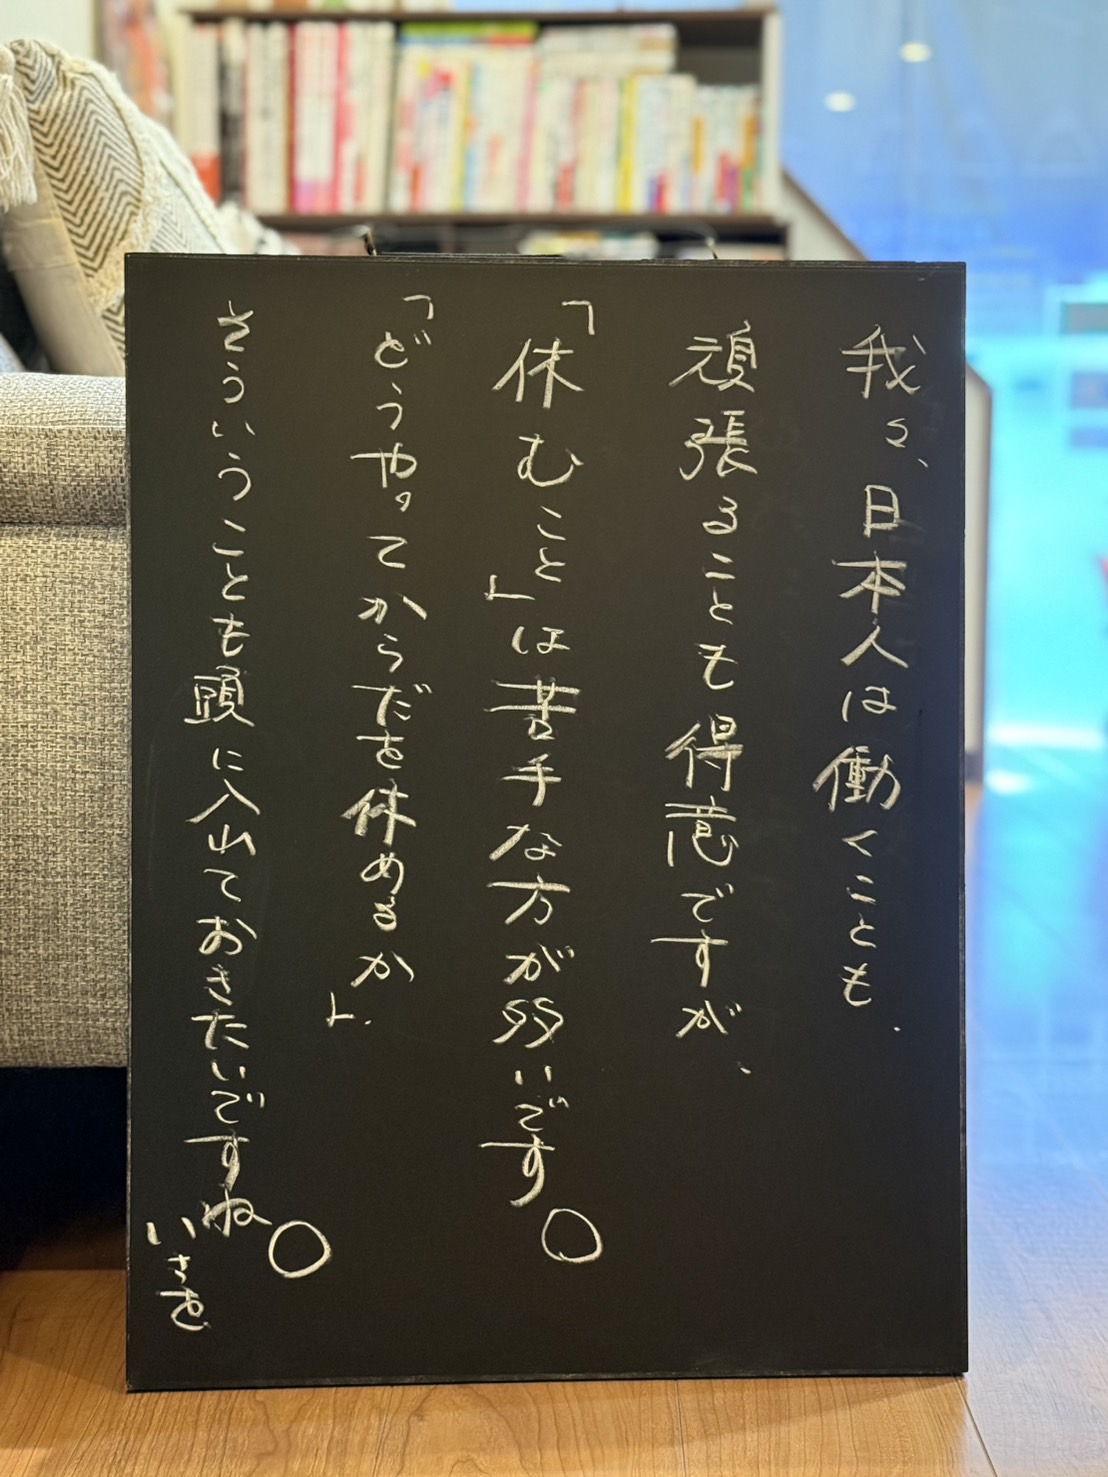 我々、日本人は働くことも、
頑張ることも得意ですが、
「休むこと」は苦手な方が多いです。
「どうやってからだを休めるか」
そういうことも頭に入れておきたいですね。
いさを